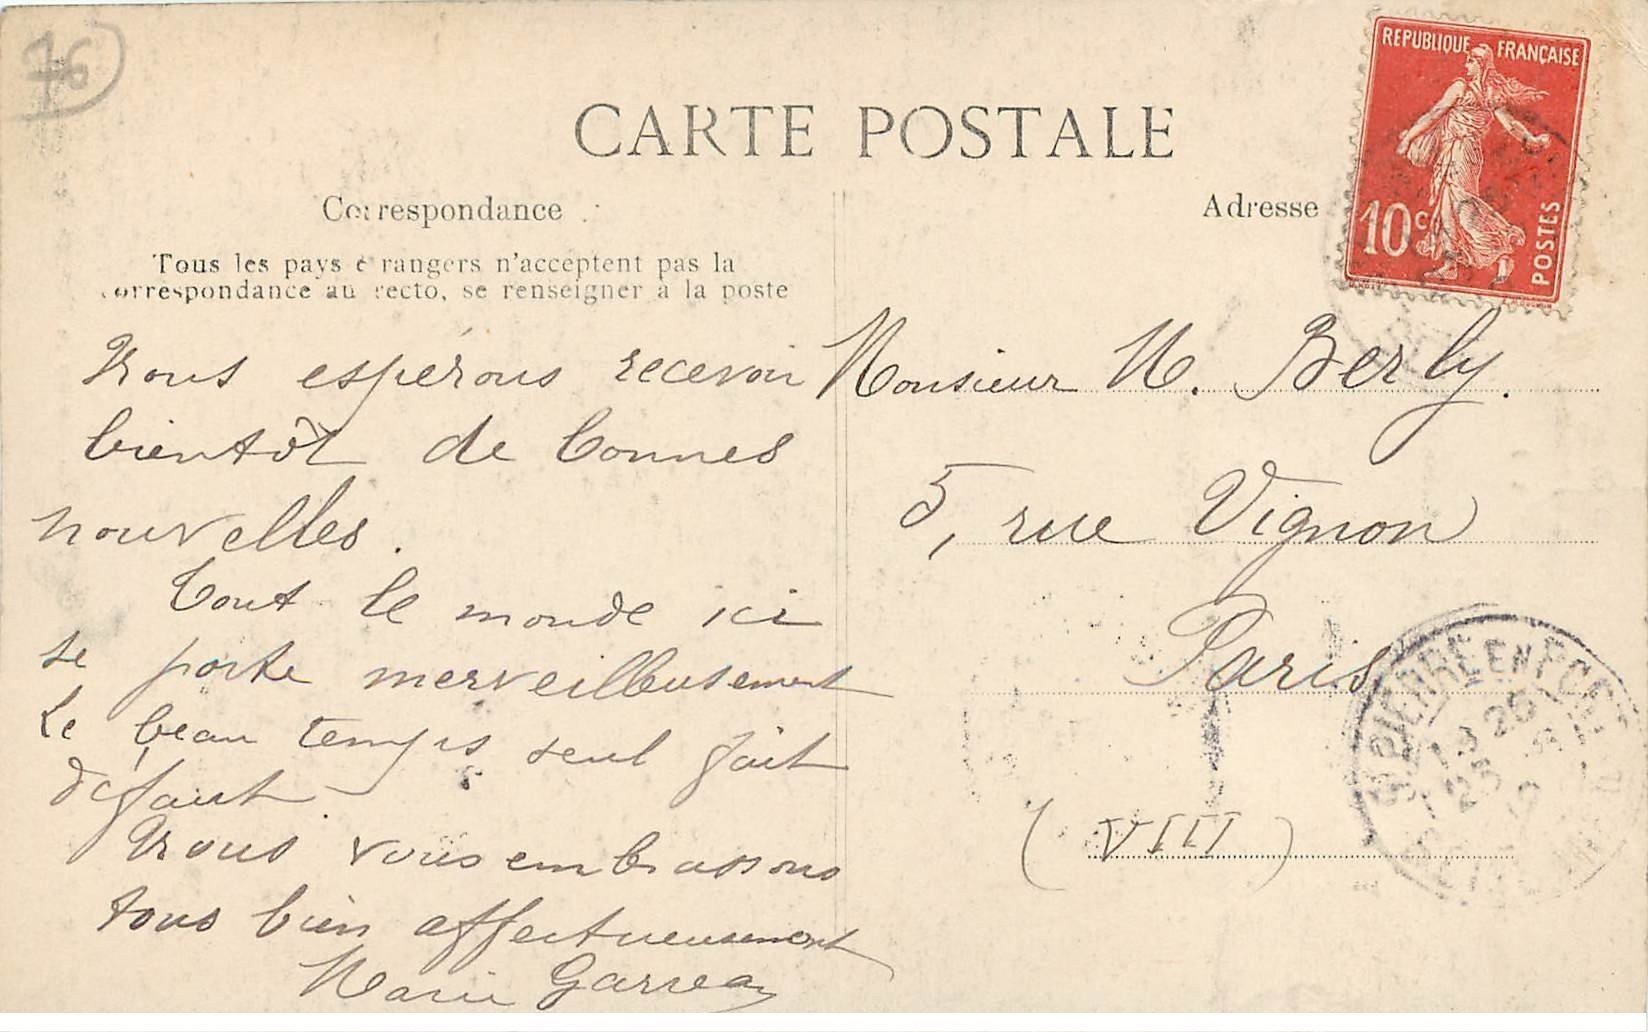 76
CARTE POSTALE
Correspondance
Tous les pays étrangers n'acceptent pas la
correspondance au recto, se renseigner à la poste
Nous espérons recevoir
bientôt de bonnes
nouvelles.
Tout le monde ici
se porte merveilleusement
Le beau temps seul fait
défaut.
Nous vous embrassons
tous bien affectueusement
Marie Garreau
Adresse
REPUBLIQUE FRANÇAISE
10c
POSTES
Monsieur M. Berly.
5, rue Vignon
Paris
(VIII)
PIERRE EN PORT
13 25
25